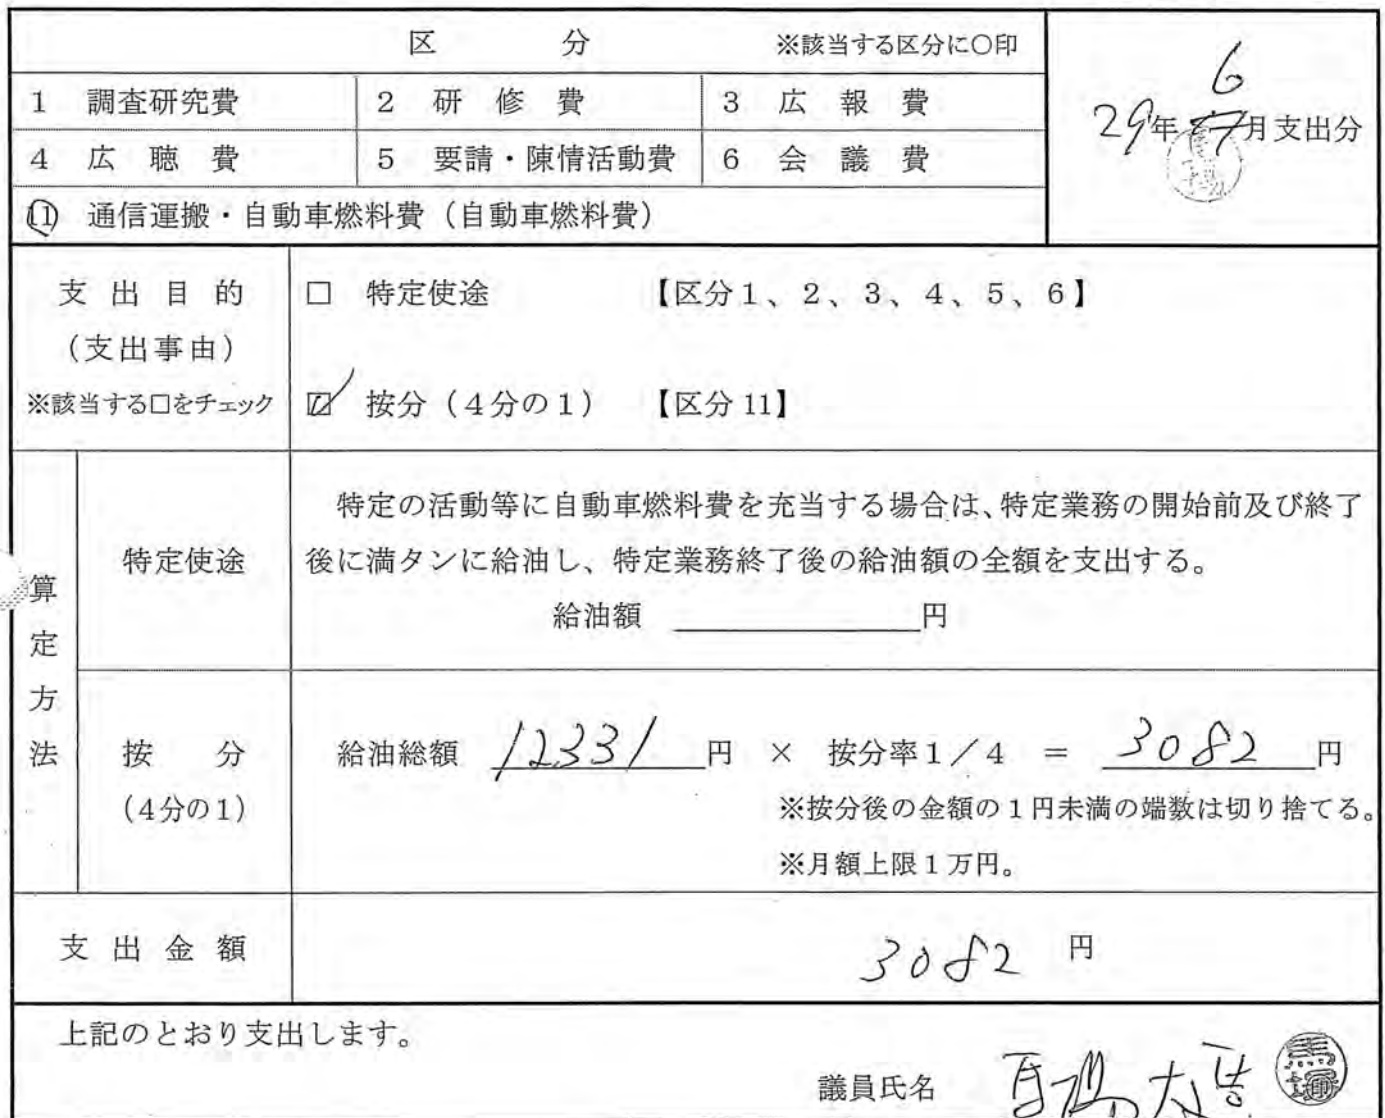 区 分 ※該当する区分に○印
1 調査研究費 2 研 修 費 3 広 報 費
4 広 聴 費 5 要請・陳情活動費 6 会 議 費
11 通信運搬・自動車燃料費（自動車燃料費）
6
29年 月支出分
支 出 目 的
（支出事由）
※該当する□をチェック
□ 特定使途 【区分1、2、3、4、5、6】
☑ 按分（4分の1） 【区分11】
算定方法
特定使途
特定の活動等に自動車燃料費を充当する場合は、特定業務の開始前及び終了
後に満タンに給油し、特定業務終了後の給油額の全額を支出する。
給油額 円
按 分
（4分の1）
給油総額 12331円 × 按分率1／4 ＝ 3082円
※按分後の金額の1円未満の端数は切り捨てる。
※月額上限1万円。
支 出 金 額 3082 円
上記のとおり支出します。
議員氏名 馬場